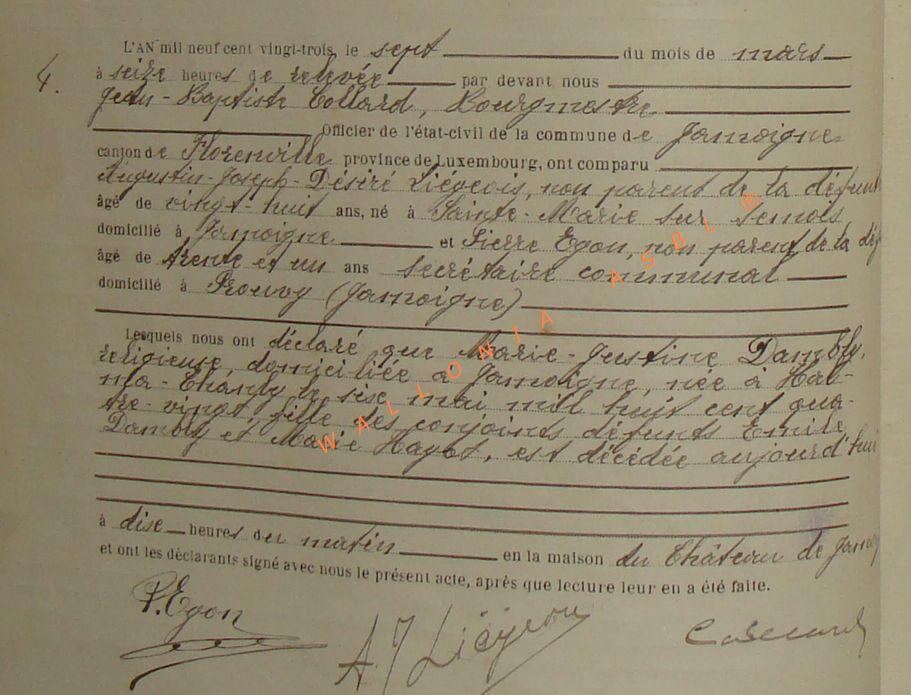 4.
L'AN mil neuf cent vingt-trois, le sept du mois de mars
à seize heures de relevée par devant nous
Jean-Baptiste Collard, Bourgmestre
Officier de l'état-civil de la commune de Jamoigne
canton de Florenville province de Luxembourg, ont comparu
Augustin-Joseph-Désiré Liégeois, non parent de la défunt
âgé de vingt-huit ans, né à Sainte-Marie sur Semois,
domicilié à Jamoigne et Pierre Egon, non parent de la déf
âgé de trente et un ans secrétaire communal
domicilié à Prouvy (Jamoigne)
Lesquels nous ont déclaré que Marie-Justine Dambly,
religieuse, domiciliée à Jamoigne, née à Hal-
ma-Chanly le six mai mil huit cent qua-
tre-vingt, fille des conjoints défunts Emile
Dambly et Marie Hayot, est décédée aujourd'hui
à dix heures du matin en la maison du Château de Jamoi
et ont les déclarants signé avec nous le présent acte, après que lecture leur en a été faite.
P. Egon
A. J. Liégeois
WALLONIA ASBL ©